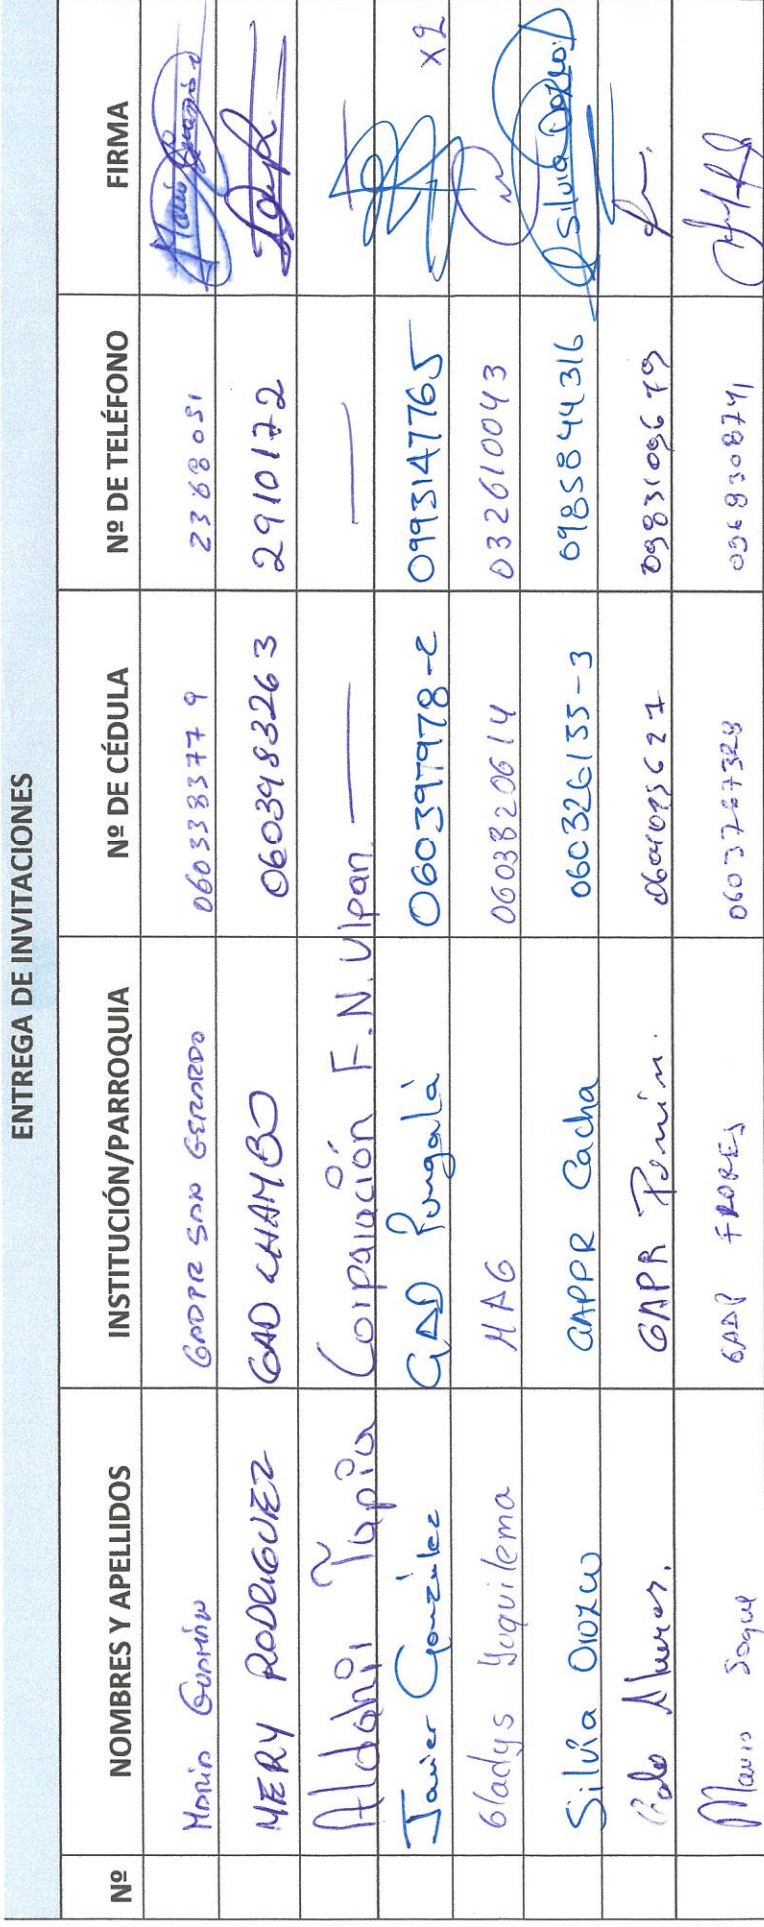 ENTREGA DE INVITACIONES
Nº NOMBRES Y APELLIDOS INSTITUCIÓN/PARROQUIA Nº DE CÉDULA Nº DE TELÉFONO FIRMA
Mario Guamán GADPR SAN GERARDO 0603383779 2368051
MERY RODRIGUEZ GAD CHAMBO 0603983263 2910172
Tapia Corporación F.N. Ulpan — —
Javier González GAD Pungalá 060397978-2 0993147765 x2
Gladys Yuquilema MAG 0603820614 032610043
Silvia Orozco GAPPR Cacha 060326135-3 0985844316 Silvia Orozco
GAPR Punín.
GADP FLORES 0603767328 0968308741